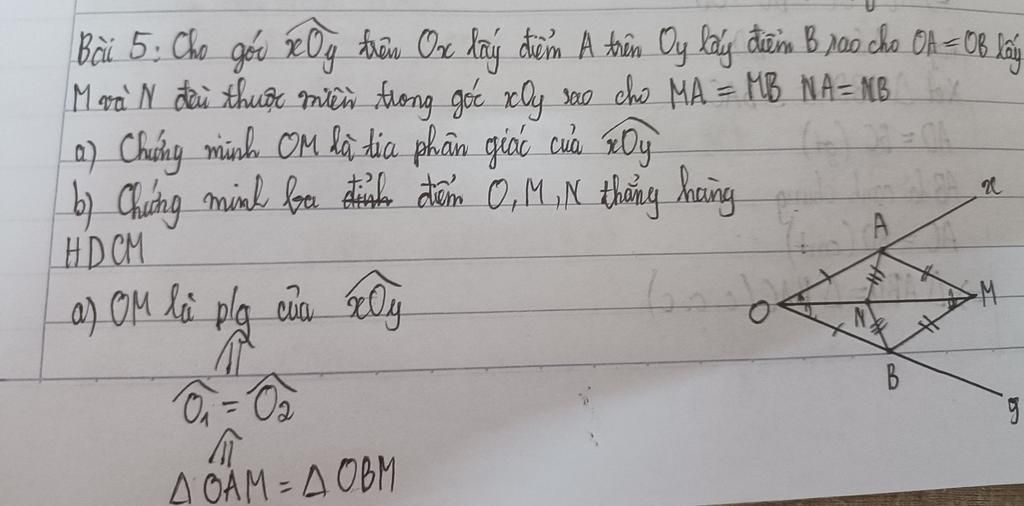 Bài 5: Cho góc xOy trên Ox lấy điểm A trên Oy lấy điểm B sao cho OA = OB lấy
M và N đều thuộc miền trong góc xOy sao cho MA = MB NA = NB
a) Chứng minh OM là tia phân giác của xOy
b) Chứng minh ba đỉnh điểm O, M, N thẳng hàng
HDCM
a) OM là plg của xOy
⇑
O₁ = O₂
⇑
Δ OAM = Δ OBM
x
A
O
N
M
B
y